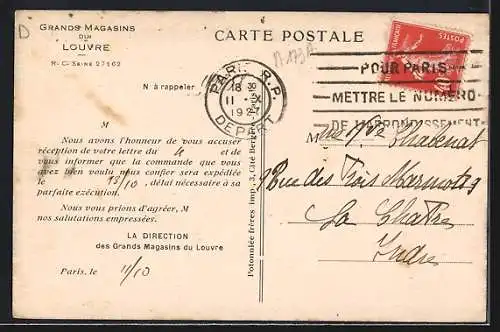 D
GRANDS MAGASINS
DU
LOUVRE
R. C. SEINE 27162
CARTE POSTALE
N 173A
POSTES
PARIS R.P.
18
11
19
DEPART
POUR PARIS
METTRE LE NUMÉRO
DE L'ARRONDISSEMENT
N° à rappeler
M
Nous avons l'honneur de vous accuser
réception de votre lettre du 4 et de
vous informer que la commande que vous
avez bien voulu nous confier sera expédiée
le 13/10, délai nécessaire à sa
parfaite exécution.
Nous vous prions d'agréer, M
nos salutations empressées.
LA DIRECTION
des Grands Magasins du Louvre
Paris, le 11/10
Potonniée frères imp. 3, Cité Bergère - Paris
M Vve Chabenat
Rue des Trois Marmots 9
La Chatre
Indre